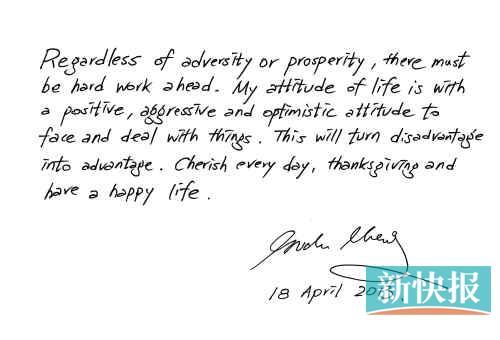 Regardless of adversity or prosperity, there must
be hard work ahead. My attitude of life is with
a positive, aggressive and optimistic attitude to
face and deal with things. This will turn disadvantage
into advantage. Cherish every day, thanksgiving and
have a happy life.
18 April
新快报